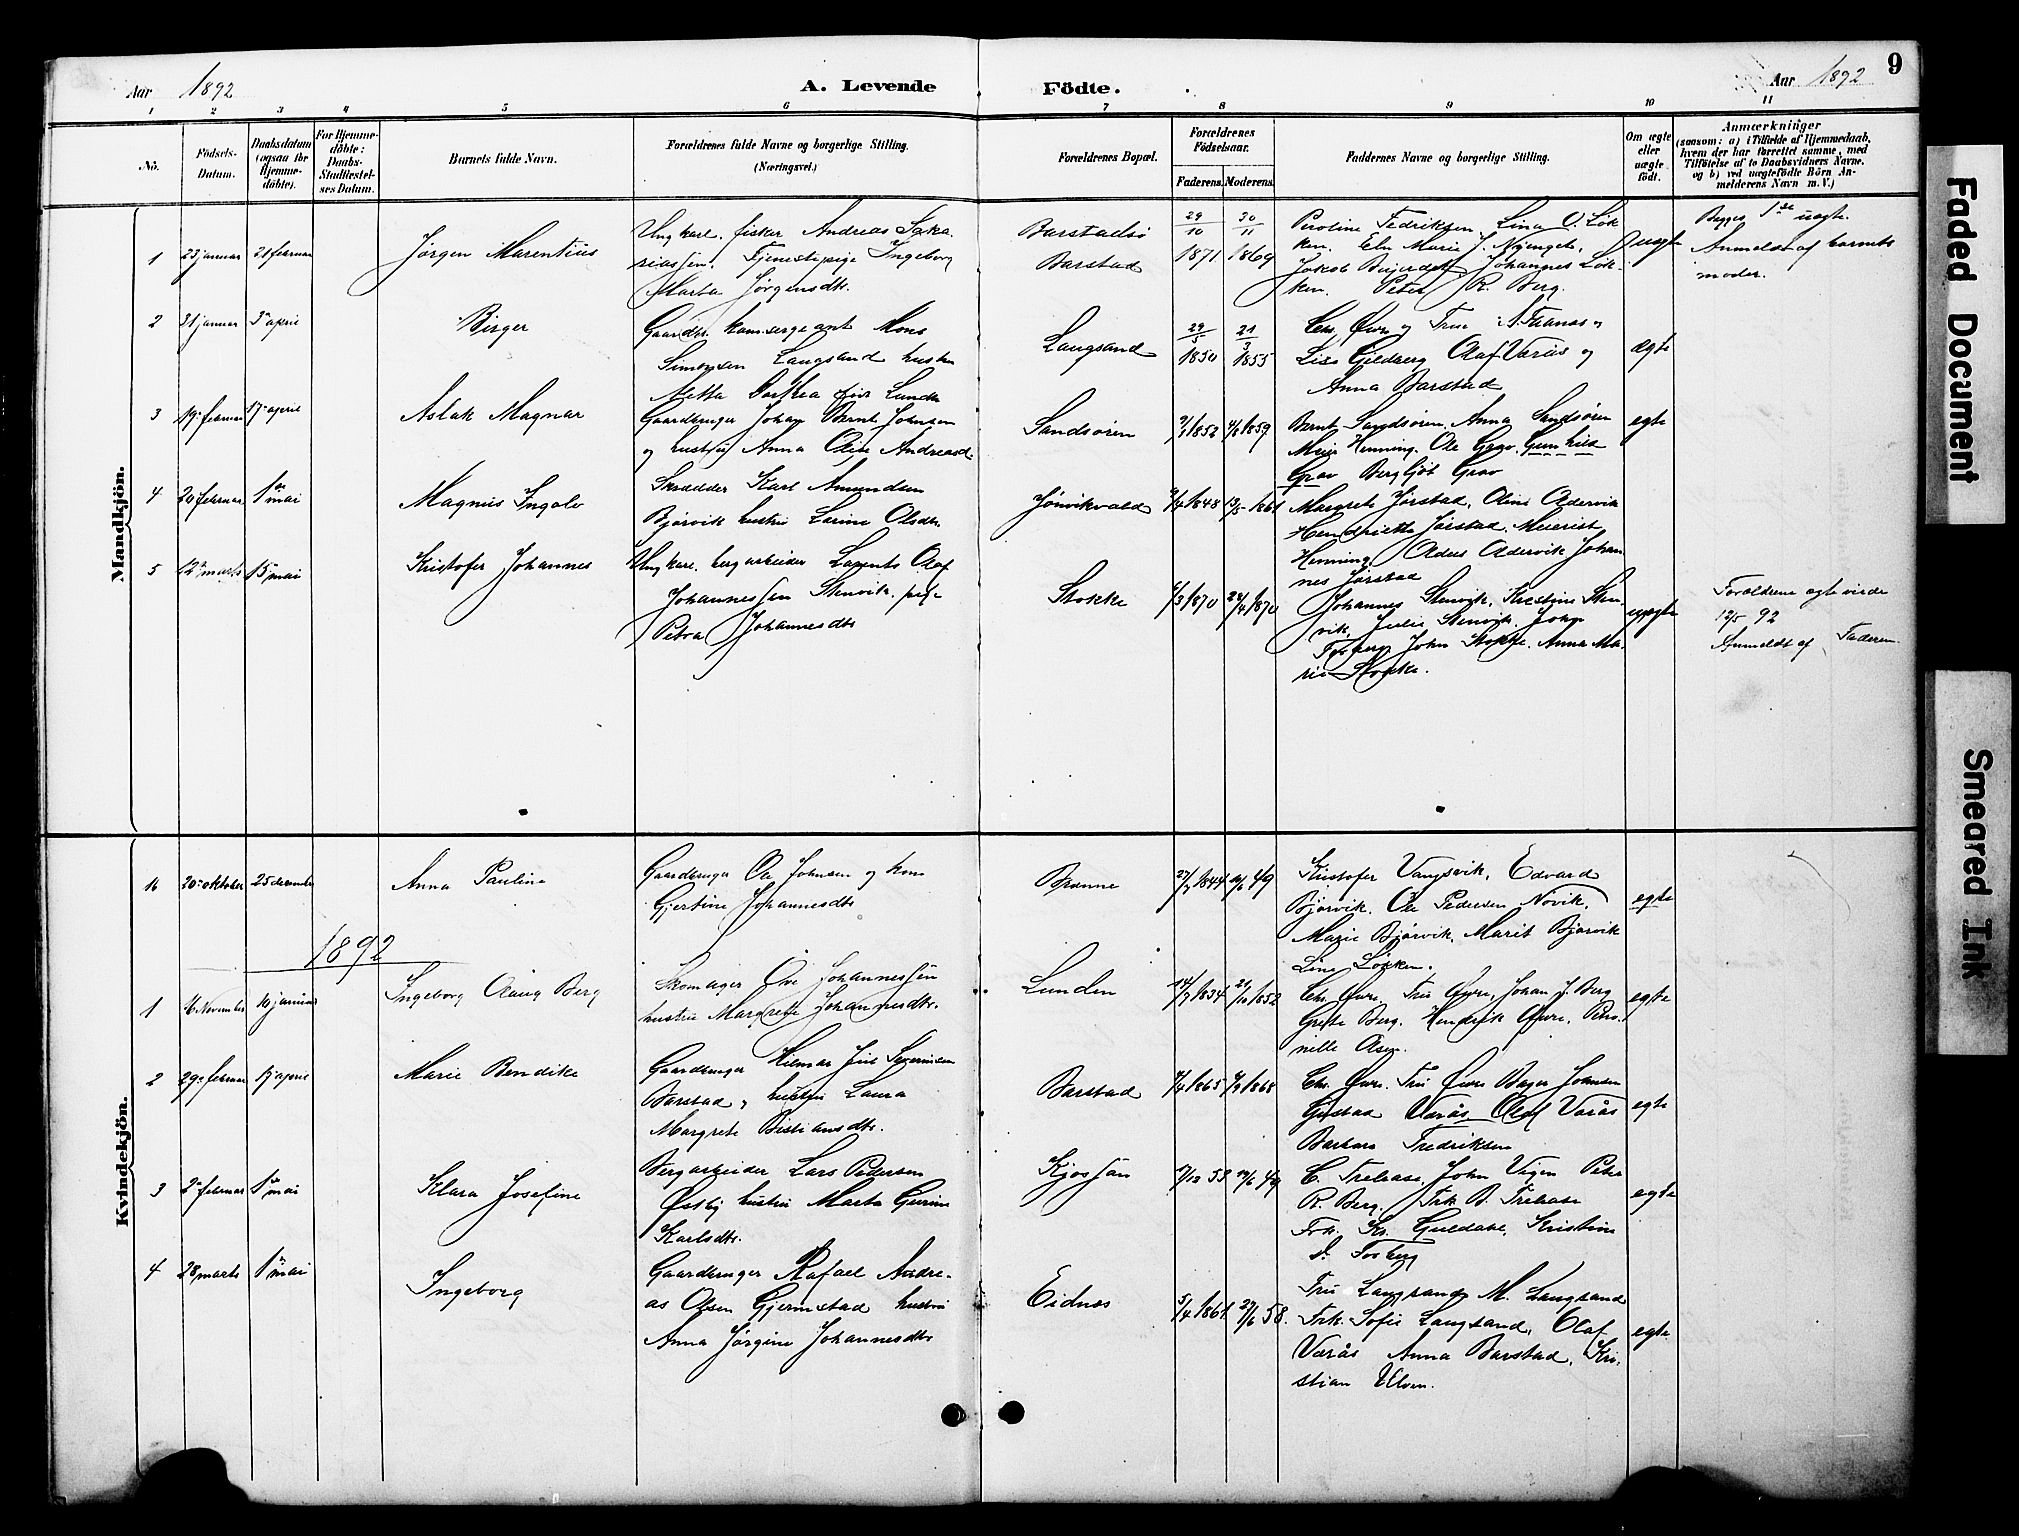 9
Aar 1892
A. Levende Födte.
Aar 1892
1 2 3 4 5 6 7 8 9 10 11
No.
Födsels-Datum.
Daabsdatum (ogsaa for Hjemme-döbte).
For Hjemme-döbte: Daabs-Stadfæstel-ses Datum.
Barnets fulde Navn.
Forældrenes fulde Navne og borgerlige Stilling.
(Næringsvei.)
Forældrenes Bopæl.
Forældrenes Födselsaar.
Faderens. Moderens.
Faddernes Navne og borgerlige Stilling.
Om ægte eller uægte födt.
Anmærkninger
(saasom: a) i Tilfælde af Hjemmedaab, hvem der har forrettet samme, med Tilföielse af to Daabsvidners Navne. og b) ved uægtefödte Börn An-melderens Navn m. V.)
Mandkjön.
1 23 januar 21 februar Jørgen Marentius
Ungkarl, fisker Andreas Saka
riassen. Tjenestepige Ingeborg
Marta Jørgensdtr.
Barstadsø
Barstad
29/10 1871 30/11 1869
Peroline Fedriksen, Lina O. Løk
ken. Eln Marie J.
Jakob Johannes Løk-
ken. Peter R. Berg.
uægte
Begges 1ste uægte.
Anmeldt af barnets
moder.
2 31 januar 3 april Birger
Gaardbr. kom.sergeant Mons
Simonsen Langsand hustru
Metta Dorthea født Lunde
Langsand
29/5 1850 21/3 1855
Chr. Øvre og Frue
Lise Gjeldberg Olaf Værås og
Anna Barstad
ægte
3 19 februar 17 april Aslak Magnar
Gaardbruger Johan Bernt Johnsen
og hustru Anna Oline Andreasd.
Sandsøren
1852 1859
Bernt Sandsøren, Anna Sandsøren
Meier Henning, Ole Grav, Gunhild
Grav Bergljot Grav
egte
4 20 februar 1 mai Magnus Ingolv
Skrædder Karl Amundsen
Bjørvik hustru Larine Olsdtr.
Jønvikvald
1848 13/5 1861
Margrete Jørstad, Oline Aldervik
Hendriette Jørstad, Meierist
Henning, Johan
nes Jørstad
5 12 marts 15 mai Kristofer Johannes
Ungkarl, bergarbeider Laurents Olaf
Johannessen Stenvik. pige
Petra Johannesdtr.
Stokke
1870 24/4 1870
Johannes Stenvik, Kristine Sten
vik, Julie Stenvik, Johan
Forberg John Stokke. Anna Ma
rie Stokke.
uægte
Forældrene egteviede
12/5 92
Anmeldt af Faderen
Kvindekjön.
16 20 oktober 25 december Anna Pauline
Gaardbruger Ole Johnsen og kone
Gjertine Johannesdtr.
Brønne
1844 49
Kristofer Vangsvik, Edvard
Bjørvik. Ole Pedersen Nøvik.
Marie Bjørvik, Marit Bjørvik
Line Løkken.
egte
1892
1 16 November 10 januar Ingeborg Olaug Berg
Skomager Ove Johannessen
hustru Margrete Johannesdtr.
Lunden
1834 1852
Chr. Øvre, Fru Øvre, Johan J. Berg
Grete Berg. Hendrik Øvre. Petro-
nelle Aasen.
egte
2 29 februar 17 april Marie Bendike
Gaardbruger Hilmar Juul Severinsen
Barstad, hustru Laura
Margrete Bistiansdtr.
Barstad
1865 1868
Chr. Øvre. Fru Øvre Johnsen
Gustad Værås Olaf Værås
Barbara Fredriksen
egte
3 2 februar 1 mai Klara Josefine
Bergarbeider Lars Pedersen
Østby hustru Marta Gurine
Karlsdtr.
Kjossan
53 49
C. Trelease, John Vigen Peter
R. Berg. Frk B. Trelease
Frk. Ks. Guldahl, Kristine
d. Forberg
egte
4 28 marts 1 mai Ingeborg
Gaardbruger Rafael Andre-
as Olsen Gjermstad hustru
Anna Jørgine Johannesdtr.
Eidnes
5/4 1861 58.
Fru Langsand, M. Langsand
Frk. Sofie Langsand, Olaf
Værås Anna Barstad, Kri-
stian Ulven.
egte
Faded Document
Smeared Ink